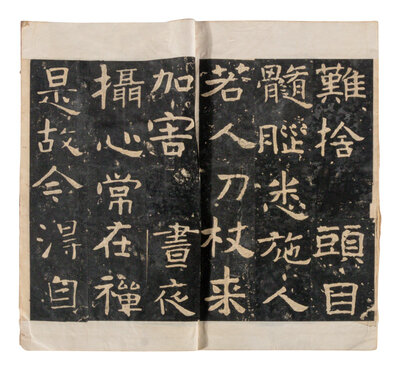 難捨　頭目
髓腦悉施人
若人刀杖来
加害　晝夜
攝心常在禪
是故今淂自